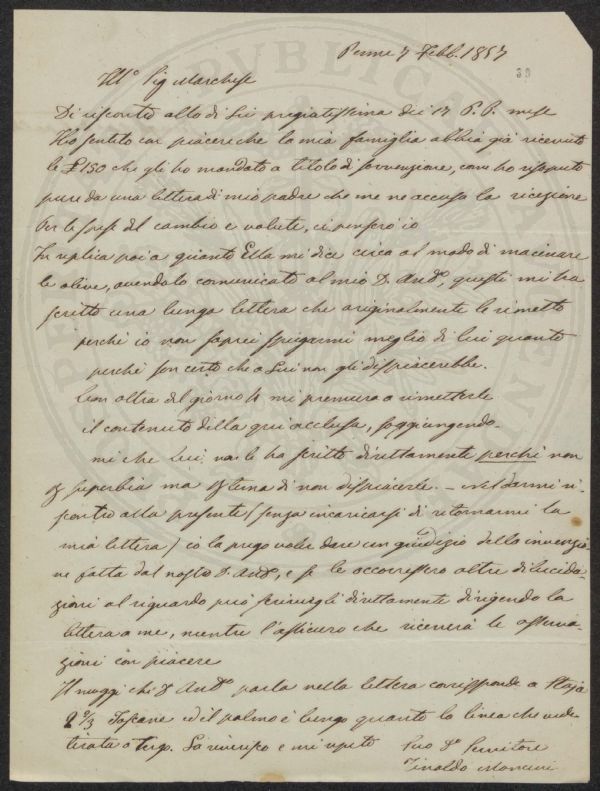 Penne 7 Febb. 1857
39
Ill.º Sig Marchese
Di riscontro alla di Lei pregiatissima dei 17 P. P. mese
Ho sentito con piacere che la mia famiglia abbia già ricevuto
le £150 che gli ho mandato a titolo di sovvenzione, come ho risaputo
pure da una lettera di mio padre che me ne accusa la ricezione
Per le spese del cambio e valute, ci penserò io
In replica poi a quanto Ella mi dice circa al modo di macinare
le olive, avendolo comunicato al mio D. Andª, questi mi ha
scritto una lunga lettera che originalmente le rimetto
perchè io non saprei spiegarmi meglio di lui quanto
perchè son certo che a Lui non gli dispiacerebbe.
Con altra del giorno 4 mi premura a rimetterle
il contenuto della qui acclusa, soggiungendo-
mi che lui non le ha scritto direttamente perchè non
p superbia ma p tema di non dispiacerle. — Nel darmi ri-
scontro alla presente (senza incaricarsi di ritornarmi la
mia lettera) io la prego voler dare un giudizio della invenzio-
ne fatta dal nostro D. Andª, e se le occorressero altre dilucida-
zioni al riguardo può scrivergli direttamente dirigendo la
lettera a me, mentre l'assicuro che riceverà le osserva-
zioni con piacere
Il moggi che D Andª parla nella lettera corrisponde a Staja
2 2/3 Toscane ed il palmo è lungo quanto la linea che vede
tirata a tergo. La riverisco e mi ripeto
Suo Dº Servitore
Tinaldo Mancini